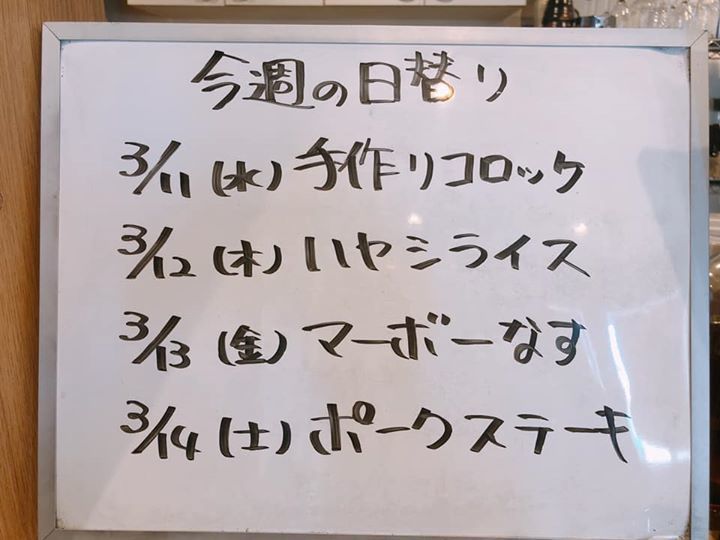 今週の日替り
3/11(水)手作りコロッケ
3/12(木)ハヤシライス
3/13(金)マーボーなす
3/14(土)ポークステーキ